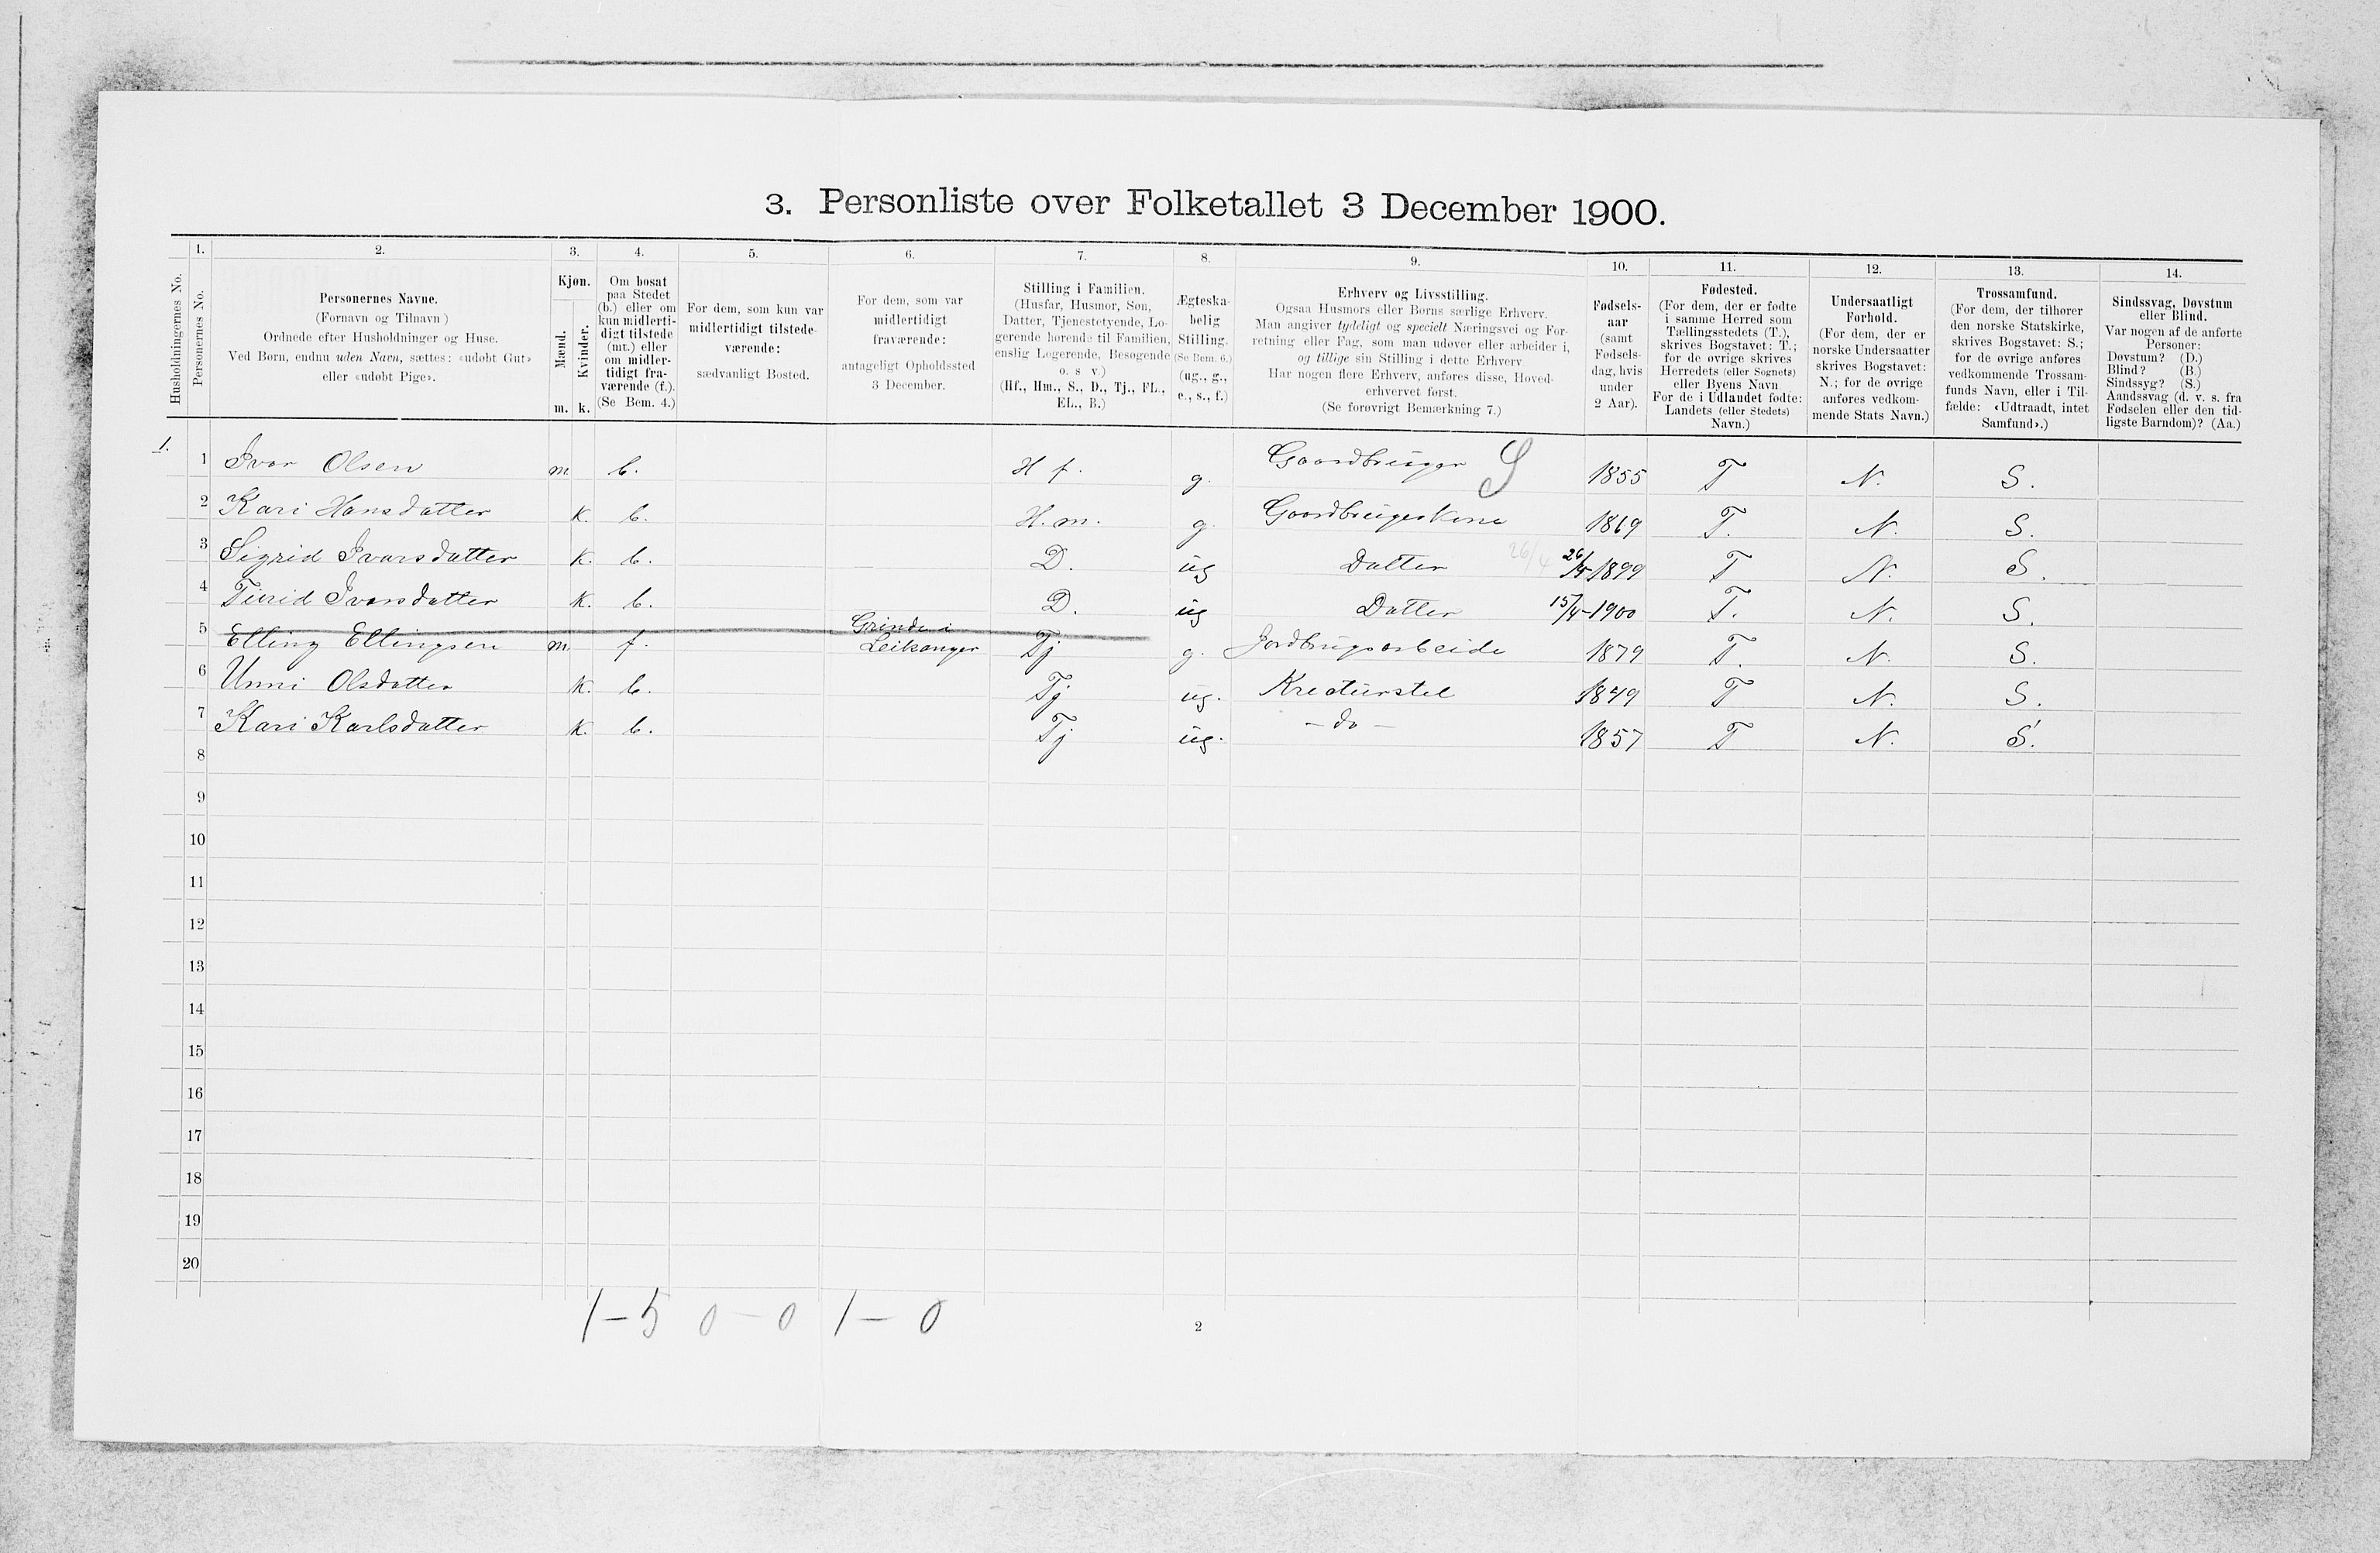 3. Personliste over Folketallet 3 December 1900.
Husholdningernes No.
1. Personernes No.
2. Personernes Navne.
(Fornavn og Tilnavn)
Ordnede efter Husholdninger og Huse.
Ved Børn, endnu uden Navn, sættes: «udøbt Gut»
eller «udøbt Pige».
3. Kjøn.
Mænd. m.
Kvinder. k.
4. Om bosat
paa Stedet
(b.) eller om
kun midlerti-
digt tilstede
(mt.) eller
om midler-
tidigt fra-
værende (f.).
(Se Bem. 4.)
5. For dem, som kun var
midlertidigt tilstede-
værende:
sædvanligt Bosted.
6. For dem, som var
midlertidigt
fraværende:
antageligt Opholdssted
3 December.
7. Stilling i Familien.
(Husfar, Husmor, Søn,
Datter, Tjenestetyende, Lo-
gerende hørende til Familien,
enslig Logerende, Besøgende
o. s v.)
(Hf., Hm., S., D., Tj., FL.,
EL., B.)
8. Ægteska-
belig
Stilling.
(Se Bem. 6.)
(ug., g.,
e., s., f.)
9. Erhverv og Livsstilling.
Ogsaa Husmors eller Børns særlige Erhverv.
Man angiver tydeligt og specielt Næringsvei og For-
retning eller Fag, som man udøver eller arbeider i,
og tillige sin Stilling i dette Erhverv
Har nogen flere Erhverv, anføres disse, Hoved-
erhvervet først.
(Se forøvrigt Bemærkning 7.)
10. Fødsels-
aar
(samt
Fødsels-
dag, hvis
under
2 Aar).
11. Fødested.
(For dem, der er fødte
i samme Herred som
Tællingsstedets (T.),
skrives Bogstavet: T.;
for de øvrige skrives
Herredets (eller Sognets)
eller Byens Navn
For de i Udlandet fødte:
Landets (eller Stedets)
Navn.)
12. Undersaatligt
Forhold.
(For dem, der er
norske Undersaatter
skrives Bogstavet:
N.; for de øvrige
anføres vedkom-
mende Stats Navn.)
13. Trossamfund.
(For dem, der tilhører
den norske Statskirke,
skrives Bogstavet: S.;
for de øvrige anføres
vedkommende Trossam-
funds Navn, eller i Til-
fælde: «Udtraadt, intet
Samfund».)
14. Sindssvag, Døvstum
eller Blind.
Var nogen af de anførte
Personer:
Døvstum? (D.)
Blind? (B.)
Sindssyg? (S.)
Aandssvag (d. v. s. fra
Fødselen eller den tid-
ligste Barndom)? (Aa.)
1. 1 Ivar Olsen m. b. Hf. g. Gaardbruger S 1855 T N. S.
2 Kari Hansdatter K. b. H.m. g. Gaardbrugerkone 1869 T. N. S.
3 Sigrid Ivarsdatter K. b. D. ug Datter 26/4 1899 T N. S.
4 Turid Ivarsdatter K. b. D. ug Datter 15/4-1900 T. N. S.
5 Elling Ellingsen m. f. Grinde i Leikanger Tj g. Jordbrugsarbeide 1879 T. N. S.
6 Unni Olsdatter K. b. Tj ug. Kreaturstel 1849 T N. S.
7 Kari Karlsdatter K. b. Tj ug. - do - 1857 T N. S.
8
9
10
11
12
13
14
15
16
17
18
19
20
1-5 0-0 1-0
2